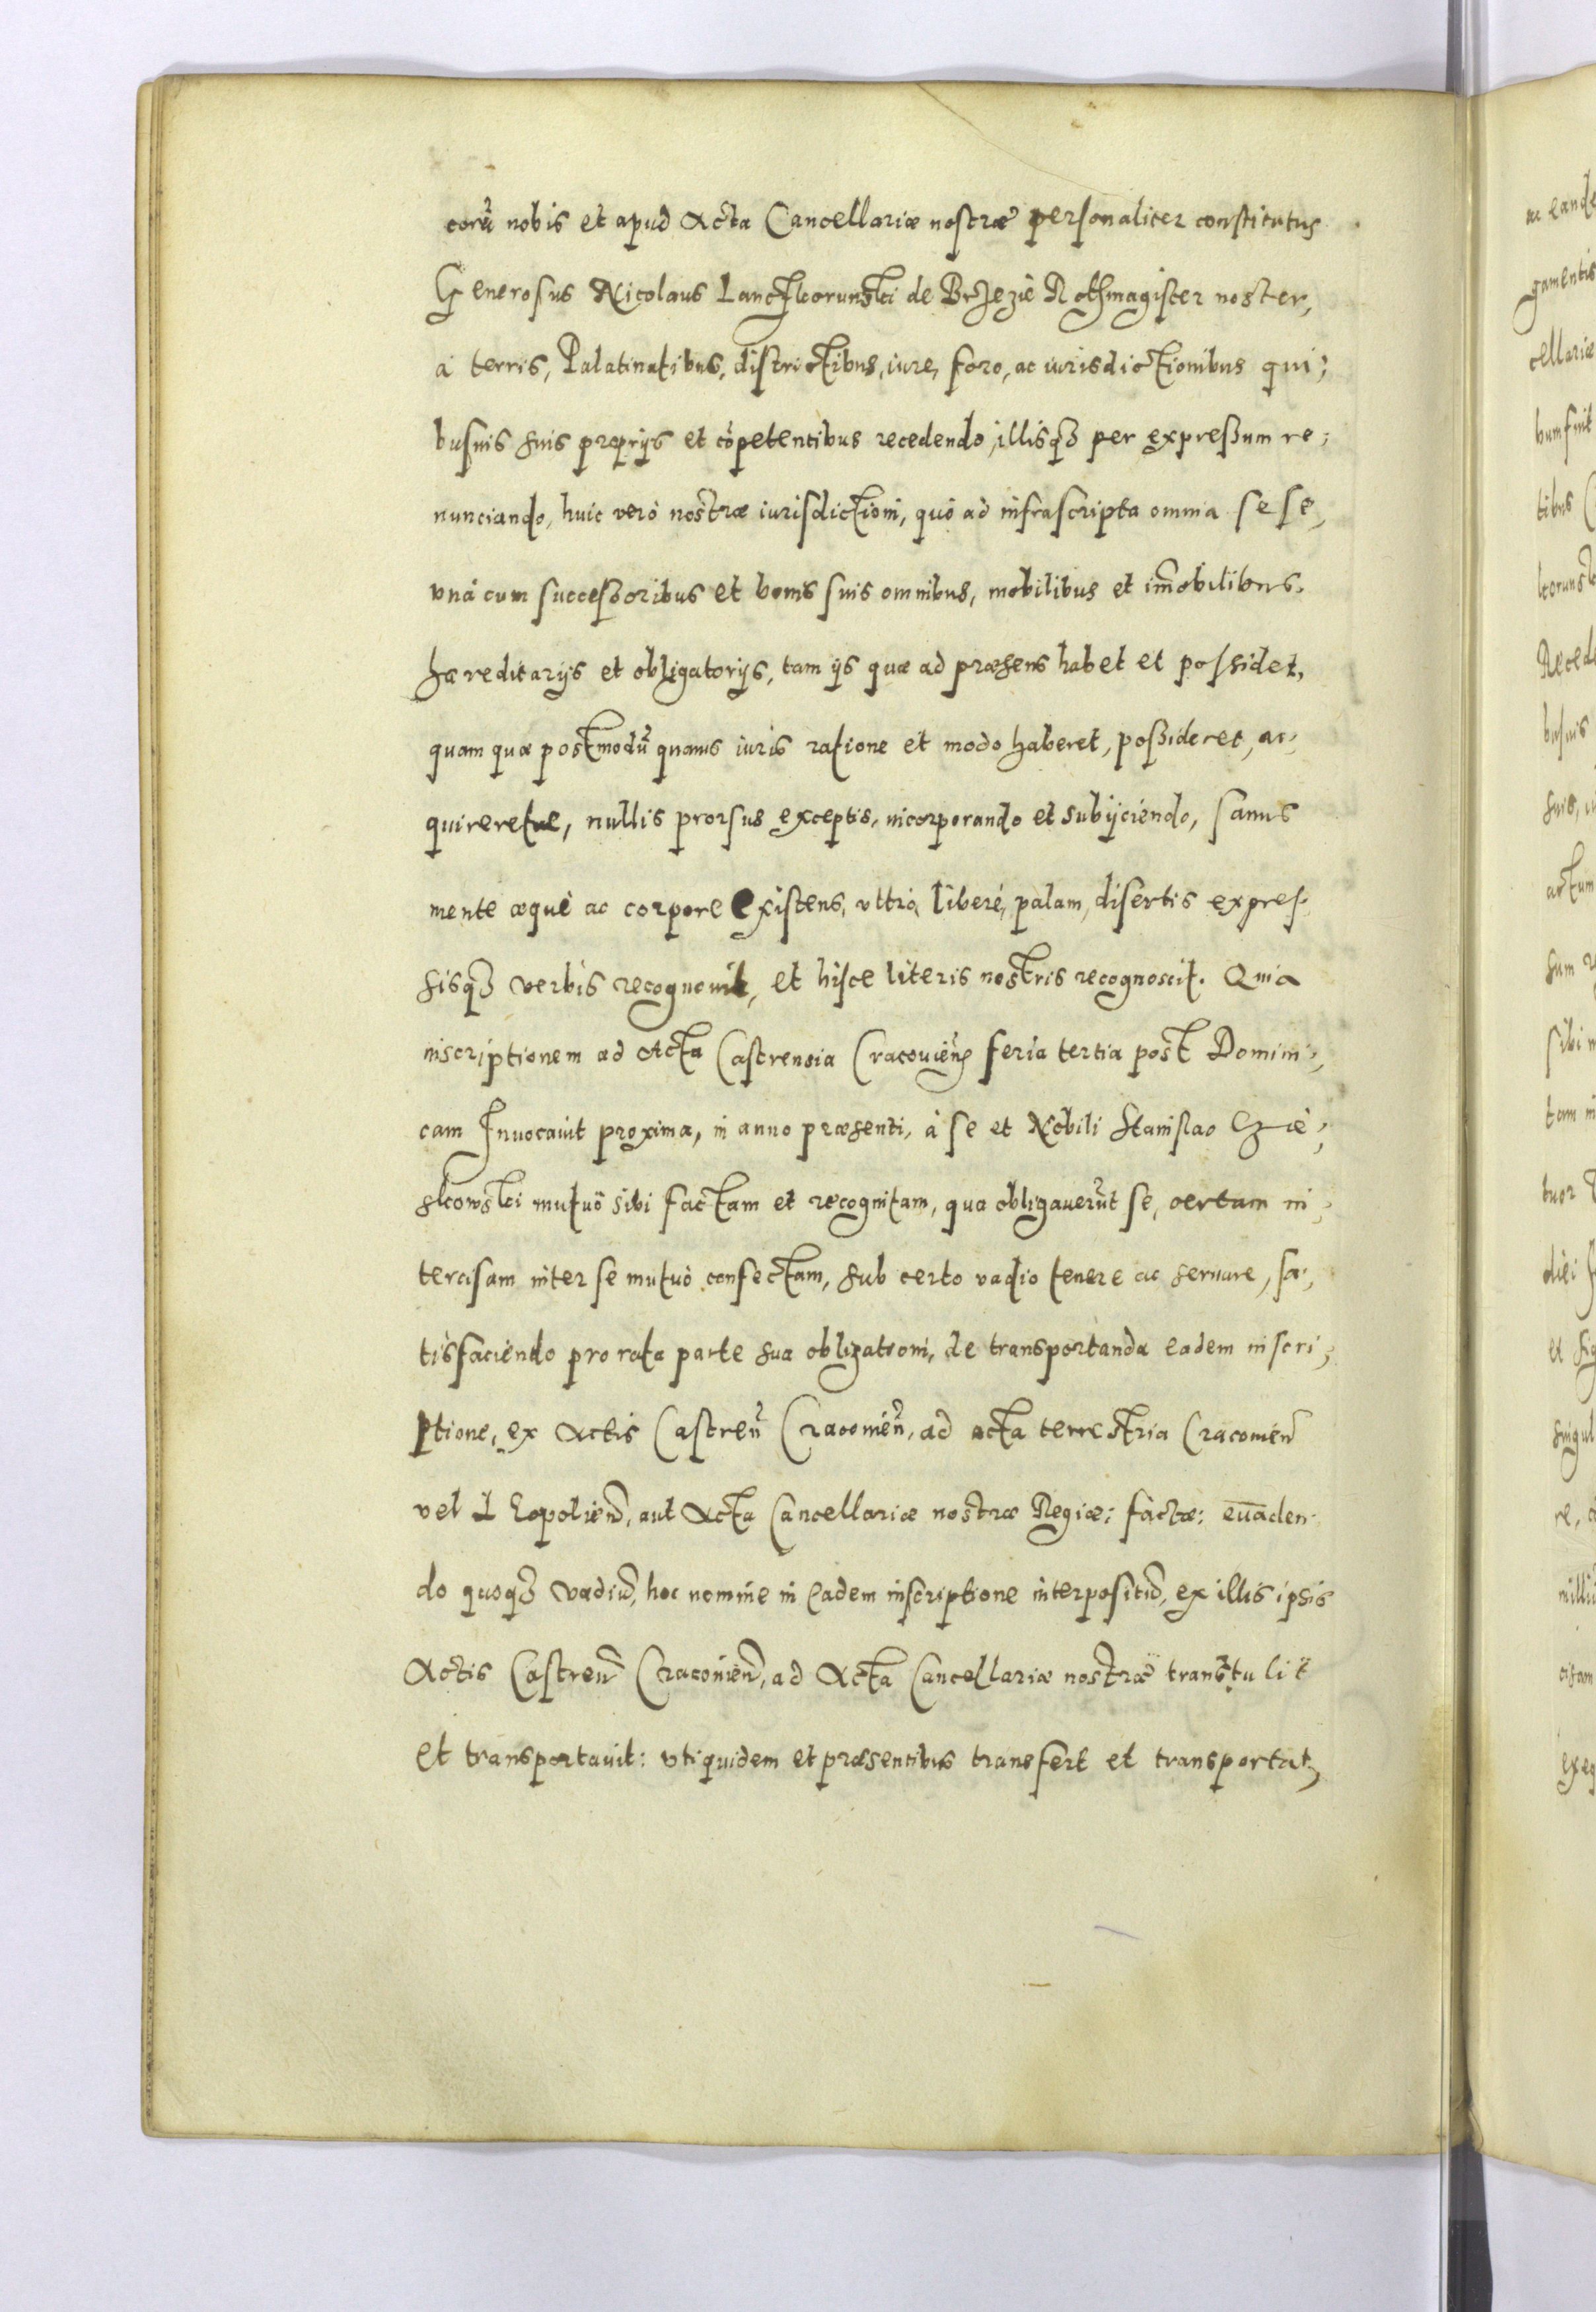 corā nobis et apud Acta Cancellariæ nostræ personaliter constitutus
Generosus Nicolaus Lanczkorunski de Brzezie Rothmagister noster,
à terris, Palatinatibus, districtibus, iure, foro, ac iurisdictionibus qui-
busuis suis proprijs et cōpetentibus recedendo, illisq3 per expreßum re-
nunciando, huic verò nostræ iurisdictioni, quò ad infrascripta omnia se se,
vnà cum succeßoribus et bonis suis omnibus, mobilibus et im̄obilibus,
hæreditarijs et obligatorijs, tam ijs quæ ad præsens habet et possidet,
quam quæ postmodū quouis iuris ratione et modo haberet, poßideret, ac-
quireretue, nullis prorsus exceptis, incorporando et subijciendo, sanus
mente æquè ac corpore existens, vltrò, liberè, palam, disertis expres-
sisq3 verbis recognouit, et hisce literis nostris recognoscit. Quia
inscriptionem ad Acta Castrensia Cracouieñ feria tertia post Domini-
cam Inuocauit proxima, in anno præsenti, à se et Nobili Stanislao
mutuò sibi factam et recognitam, qua obligauerūt se, certam in-
tercisam inter se mutuò confectam, sub certo vadio tenere ac seruare, sa-
tisfaciendo pro rata parte sua obligationi, de transportanda eadem inscri-
ptione, ex Actis Castreñ Cracouieñ, ad acta terrestria Cracouieñ
vel Leopolieñ, aut Acta Cancellariæ nostræ Regiæ; factæ; euaden-
do quoq3 vadiū, hoc nomine in eadem inscriptione interpositū, ex illis ipsis
Actis Castreñ Cracouieñ, ad Acta Cancellariæ nostræ transtulit
et transportauit: vtiquidem et præsentibus transfert et transportat,